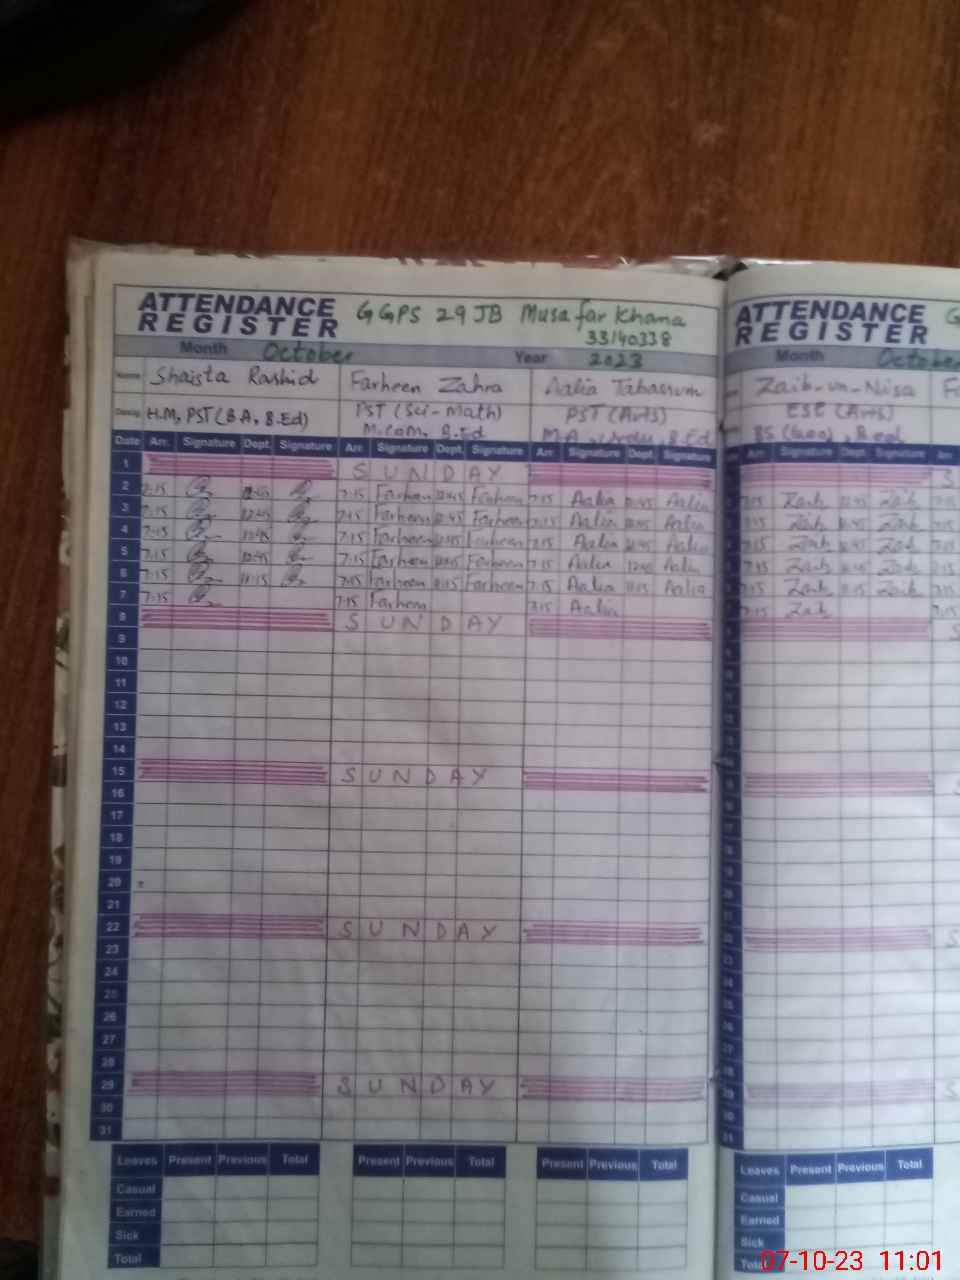 ATTENDANCE REGISTER GGPS 29 JB Musafar Khana
33140338
Month October Year 2023
Name Shaista Rashid Farheen Zahra Aalia Tabassum
Desig: H.M, PST (B A, B.Ed) PST (Sci-Math) PST (Arts)
M.Com, B.Ed M.A, Urdu, B.Ed
Date Arr. Signature Dept. Signature Arr. Signature Dept. Signature Arr. Signature Dept. Signature
1 SUNDAY
2 7:15 12:45 7:15 Farheen 12:45 Farheen 7:15 Aalia 12:45 Aalia
3 7:15 12:45 7:15 Farheen 12:45 Farheen 7:15 Aalia 12:45 Aalia
4 7:15 12:45 7:15 Farheen 12:45 Farheen 7:15 Aalia 12:45 Aalia
5 7:15 12:45 7:15 Farheen 12:45 Farheen 7:15 Aalia 12:45 Aalia
6 7:15 11:15 7:15 Farheen 11:15 Farheen 7:15 Aalia 11:15 Aalia
7 7:15 7:15 Farheen 7:15 Aalia
8 SUNDAY
9
10
11
12
13
14
15 SUNDAY
16
17
18
19
20
21
22 SUNDAY
23
24
25
26
27
28
29 SUNDAY
30
31
Leaves Present Previous Total Present Previous Total Present Previous Total
Casual
Earned
Sick
Total
ATTENDANCE REGISTER G
Month October
Zaib-un-Nisa
ESE (Arts)
Arr. Signature Dept. Signature
7:15 Zaib 12:45 Zaib
7:15 Zaib 12:45 Zaib
7:15 Zaib 12:45 Zaib
7:15 Zaib 12:45 Zaib
7:15 Zaib 11:15 Zaib
7:15 Zaib
Leaves Present Previous Total
Casual
Earned
Sick
Total
07-10-23 11:01